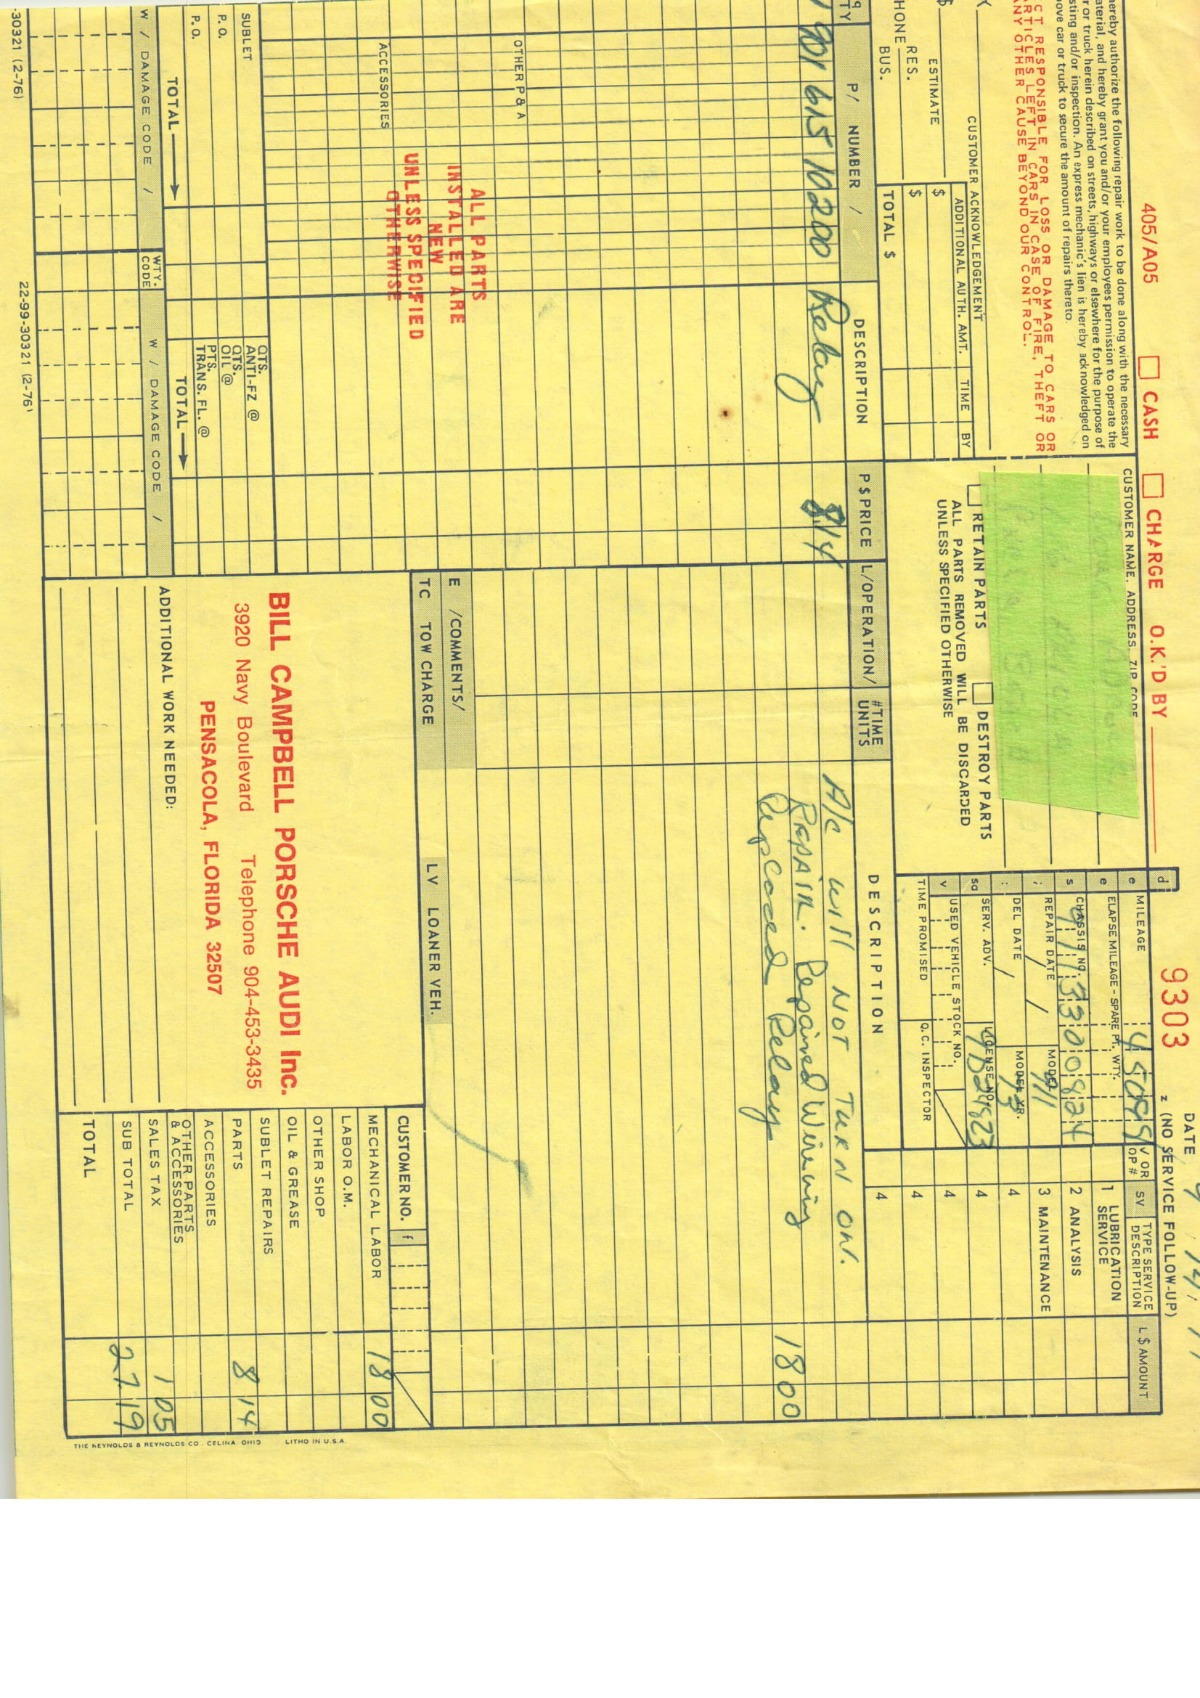 405/A05 CASH CHARGE O.K.'D BY
9303
DATE
z (NO SERVICE FOLLOW-UP)
hereby authorize the following repair work to be done along with the necessary
aterial, and hereby grant you and/or your employees permission to operate the
r or truck herein described on streets, highways or elsewhere for the purpose of
sting and/or inspection. An express mechanic's lien is hereby acknowledged on
ove car or truck to secure the amount of repairs thereto.
CT RESPONSIBLE FOR LOSS OR DAMAGE TO CARS OR
RTICLES LEFT IN CARS IN CASE OF FIRE, THEFT OR
NY OTHER CAUSE BEYOND OUR CONTROL.
CUSTOMER ACKNOWLEDGEMENT
ESTIMATE
ADDITIONAL AUTH. AMT. TIME BY
$
$
TOTAL $
HONE RES.
BUS.
CUSTOMER NAME, ADDRESS, ZIP CODE
RETAIN PARTS DESTROY PARTS
ALL PARTS REMOVED WILL BE DISCARDED
UNLESS SPECIFIED OTHERWISE
d
e MILEAGE
e ELAPSE MILEAGE - SPARE PT. WTY.
s CHASSIS NO. 9113300824
REPAIR DATE / / MODEL 911
DEL DATE / MODEL YR. 73
SERV. ADV. LICENSE NO.
v USED VEHICLE STOCK NO.
TIME PROMISED Q.C. INSPECTOR
V OR OP # SV TYPE SERVICE DESCRIPTION L $ AMOUNT
1 LUBRICATION SERVICE
2 ANALYSIS
3 MAINTENANCE
4
4
4
4
4
QTY P/ NUMBER / DESCRIPTION P $ PRICE
901 615 102 00 Relay 8 14
L/OPERATION/ #TIME UNITS DESCRIPTION
A/C will NOT TURN ON.
REPAIR. Repaired Wireing
Replaced Relay 18 00
OTHER P & A
ACCESSORIES
ALL PARTS
INSTALLED ARE
NEW
UNLESS SPECIFIED
OTHERWISE
SUBLET
P.O.
P.O.
TOTAL
QTS. ANTI-FZ @
QTS. OIL @
PTS. TRANS. FL. @
TOTAL
W / DAMAGE CODE / WTY. CODE W / DAMAGE CODE /
-30321 (2-76)
22-99-30321 (2-76)
E /COMMENTS/
TC TOW CHARGE LV LOANER VEH.
BILL CAMPBELL PORSCHE AUDI Inc.
3920 Navy Boulevard Telephone 904-453-3435
PENSACOLA, FLORIDA 32507
ADDITIONAL WORK NEEDED:
CUSTOMER NO. f
MECHANICAL LABOR 18 00
LABOR O.M.
OTHER SHOP
OIL & GREASE
SUBLET REPAIRS
PARTS 8 14
ACCESSORIES
OTHER PARTS & ACCESSORIES
SALES TAX 1 05
SUB TOTAL 27 19
TOTAL
THE REYNOLDS & REYNOLDS CO. CELINA, OHIO LITHO IN U.S.A.